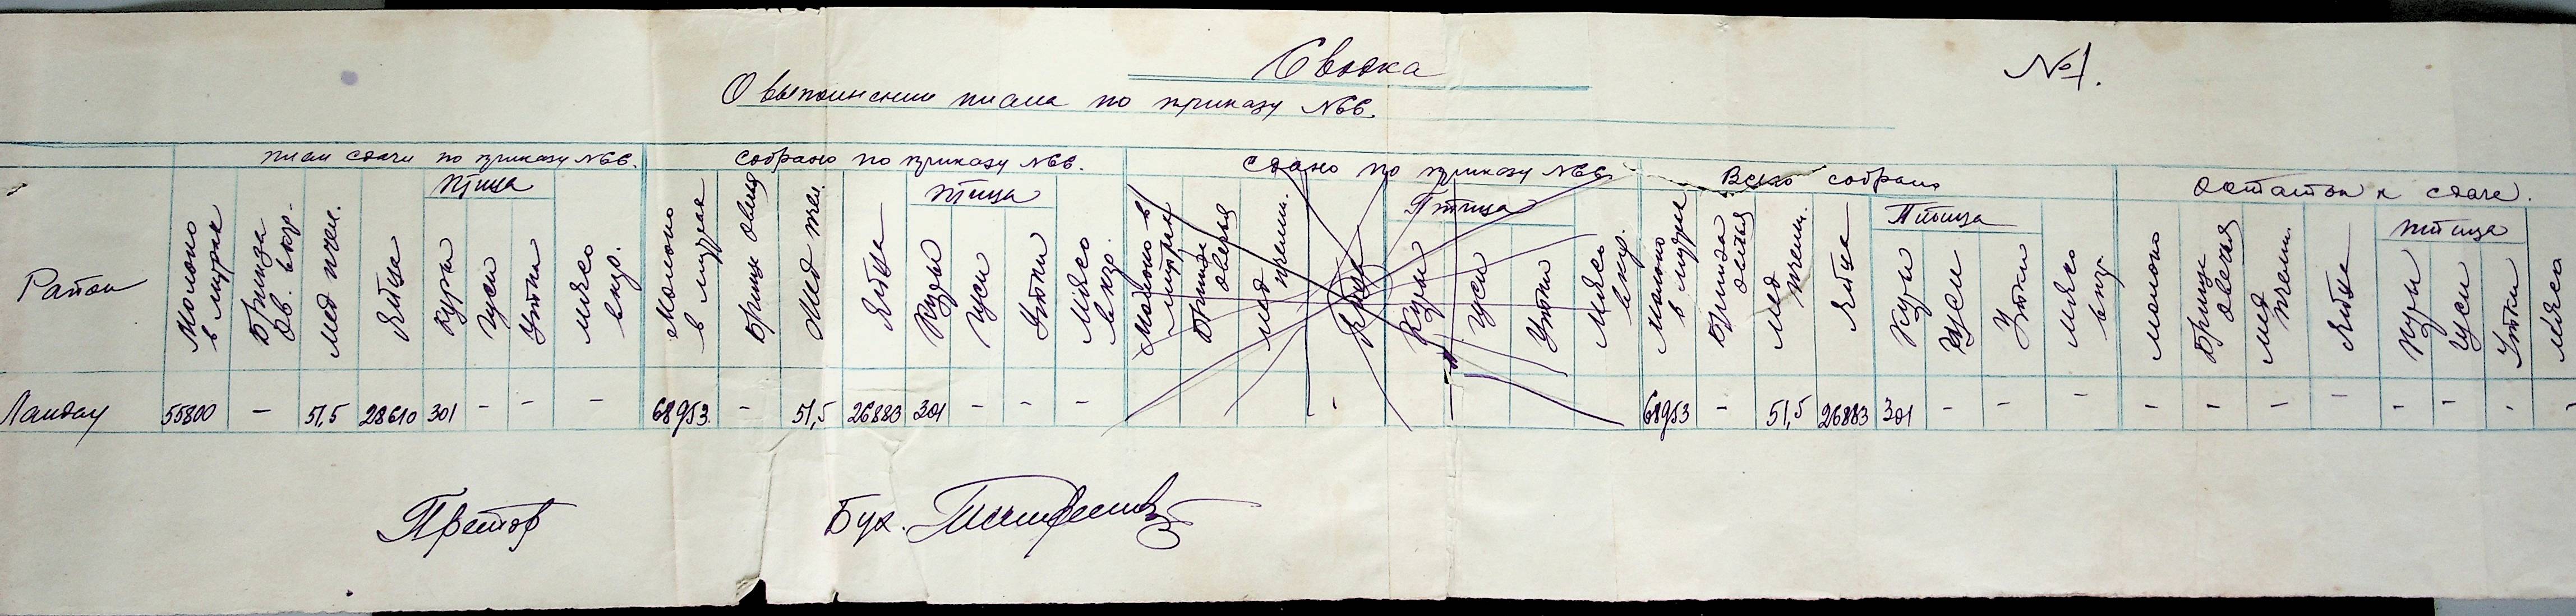 Сводка
№1.
О выполнении плана по приказу №66.
план сдачи по приказу №66.
собрано по приказу №66.
сдано по приказу №66.
Всего собрано
остаток к сдаче.
Район
Молоко в литрах
Брынза ов. в кгр.
Мед пчел.
Яйца
птица
куры
гуси
утки
мясо в кгр.
Молоко в литрах
Брынз овечья
Мед пчел.
Яйца
птица
Куры
Гуси
Утки
Мясо в кгр.
Молоко в литрах
Брынза овечья
мед пчелин.
Яйца
Птица
Куры
Гуси
Утки
Мясо в кгр.
Молоко в литрах
Брынза овечья
Мед пчелин.
Яйца
Птица
Куры
Гуси
Утки
Мясо в кгр
молоко
Брынза овечья
Мед пчелин.
Яйца
птица
Куры
Гуси
Утки
Мясо
Ландау 55800 - 51,5 28610 301 - - - 68953 - 51,5 26883 301 - - - - - 68953 - 51,5 26883 301 - - - - - - - - - - -
Претор
Бух.